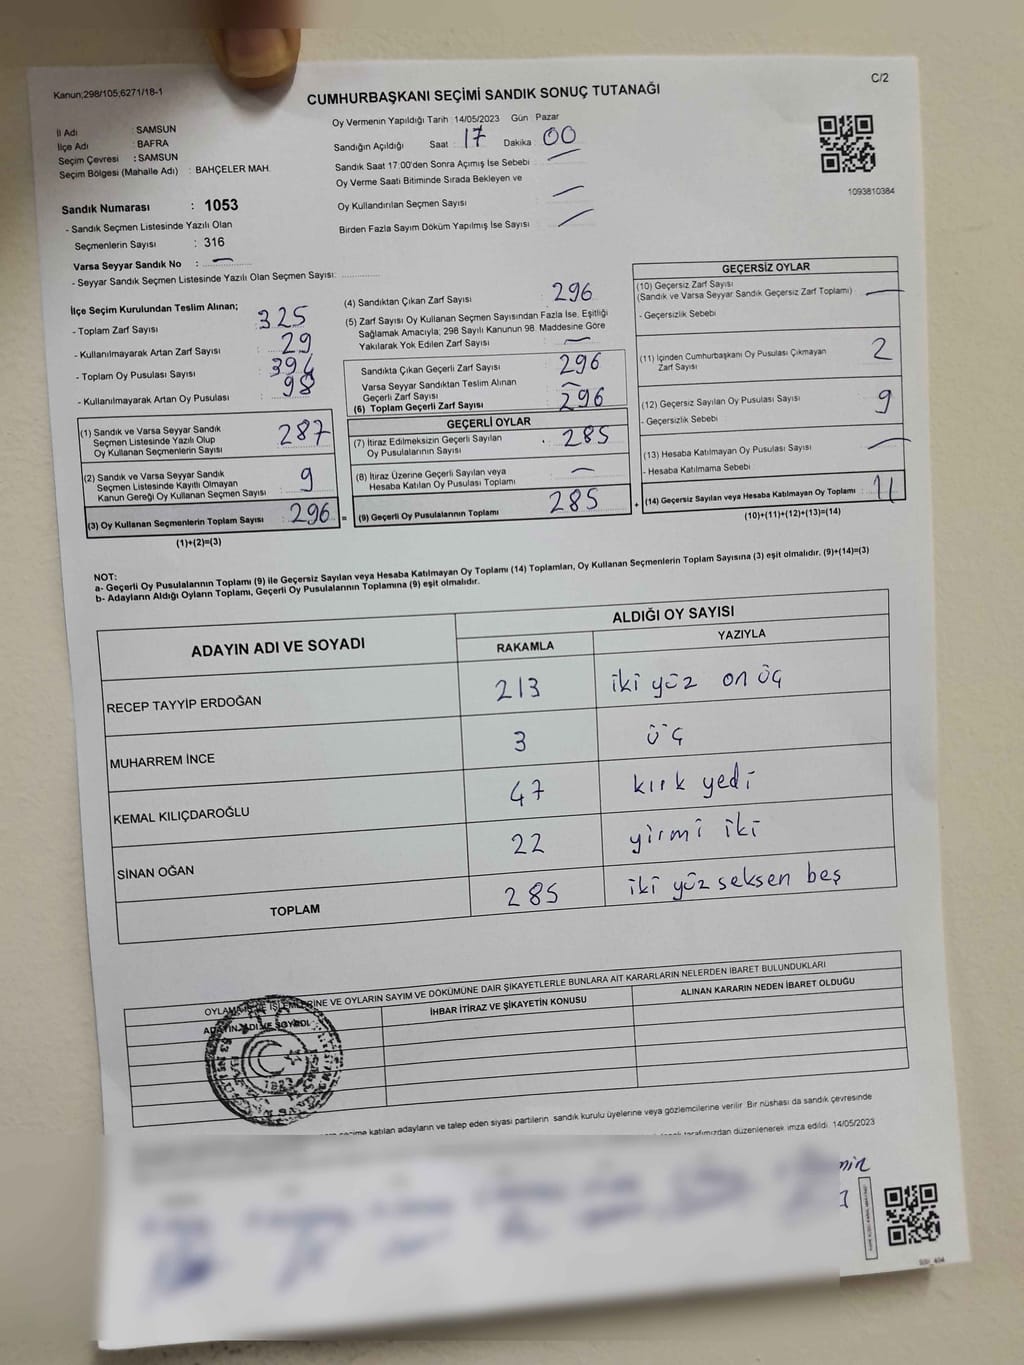 Kanun;298/105;6271/18-1
C/2
CUMHURBAŞKANI SEÇİMİ SANDIK SONUÇ TUTANAĞI
İl Adı : SAMSUN
İlçe Adı : BAFRA
Seçim Çevresi : SAMSUN
Seçim Bölgesi (Mahalle Adı) : BAHÇELER MAH.
Oy Vermenin Yapıldığı Tarih :14/05/2023 Gün Pazar
Sandığın Açıldığı Saat : 17 Dakika 00
Sandık Saat 17:00'den Sonra Açımış İse Sebebi :
Oy Verme Saati Bitiminde Sırada Bekleyen ve
Oy Kullandırılan Seçmen Sayısı
Birden Fazla Sayım Döküm Yapılmış İse Sayısı :
1093810384
Sandık Numarası : 1053
- Sandık Seçmen Listesinde Yazılı Olan
Seçmenlerin Sayısı : 316
Varsa Seyyar Sandık No :
- Seyyar Sandık Seçmen Listesinde Yazılı Olan Seçmen Sayısı:
İlçe Seçim Kurulundan Teslim Alınan;
- Toplam Zarf Sayısı : 325
- Kullanılmayarak Artan Zarf Sayısı : 29
- Toplam Oy Pusulası Sayısı : 394
- Kullanılmayarak Artan Oy Pusulası : 98
(1) Sandık ve Varsa Seyyar Sandık
Seçmen Listesinde Yazılı Olup
Oy Kullanan Seçmenlerin Sayısı : 287
(2) Sandık ve Varsa Seyyar Sandık
Seçmen Listesinde Kayıtlı Olmayan
Kanun Gereği Oy Kullanan Seçmen Sayısı : 9
(3) Oy Kullanan Seçmenlerin Toplam Sayısı : 296 =
(1)+(2)=(3)
(4) Sandıktan Çıkan Zarf Sayısı : 296
(5) Zarf Sayısı Oy Kullanan Seçmen Sayısından Fazla İse, Eşitliği
Sağlamak Amacıyla; 298 Sayılı Kanunun 98. Maddesine Göre
Yakılarak Yok Edilen Zarf Sayısı :
Sandıkta Çıkan Geçerli Zarf Sayısı : 296
Varsa Seyyar Sandıktan Teslim Alınan
Geçerli Zarf Sayısı :
(6) Toplam Geçerli Zarf Sayısı : 296
GEÇERLİ OYLAR
(7) İtiraz Edilmeksizin Geçerli Sayılan
Oy Pusulalarının Sayısı : 285
(8) İtiraz Üzerine Geçerli Sayılan veya
Hesaba Katılan Oy Pusulası Toplamı :
(9) Geçerli Oy Pusulalarının Toplamı : 285 +
GEÇERSİZ OYLAR
(10) Geçersiz Zarf Sayısı
(Sandık ve Varsa Seyyar Sandık Geçersiz Zarf Toplamı) :
- Geçersizlik Sebebi :
(11) İçinden Cumhurbaşkanı Oy Pusulası Çıkmayan
Zarf Sayısı : 2
(12) Geçersiz Sayılan Oy Pusulası Sayısı : 9
- Geçersizlik Sebebi :
(13) Hesaba Katılmayan Oy Pusulası Sayısı :
- Hesaba Katılmama Sebebi :
(14) Geçersiz Sayılan veya Hesaba Katılmayan Oy Toplamı : 11
(10)+(11)+(12)+(13)=(14)
NOT:
a- Geçerli Oy Pusulalarının Toplamı (9) ile Geçersiz Sayılan veya Hesaba Katılmayan Oy Toplamı (14) Toplamları, Oy Kullanan Seçmenlerin Toplam Sayısına (3) eşit olmalıdır. (9)+(14)=(3)
b- Adayların Aldığı Oyların Toplamı, Geçerli Oy Pusulalarının Toplamına (9) eşit olmalıdır.
ADAYIN ADI VE SOYADI
ALDIĞI OY SAYISI
RAKAMLA YAZIYLA
RECEP TAYYİP ERDOĞAN 213 iki yüz on üç
MUHARREM İNCE 3 üç
KEMAL KILIÇDAROĞLU 47 kırk yedi
SİNAN OĞAN 22 yirmi iki
TOPLAM 285 iki yüz seksen beş
OYLAMA VE İŞLEMLERİNE VE OYLARIN SAYIM VE DÖKÜMÜNE DAİR ŞİKAYETLERLE BUNLARA AİT KARARLARIN NELERDEN İBARET BULUNDUKLARI
ADAYIN ADI VE SOYADI
İHBAR İTİRAZ VE ŞİKAYETİN KONUSU
ALINAN KARARIN NEDEN İBARET OLDUĞU
1923
seçime katılan adayların ve talep eden siyasi partilerin sandık kurulu üyelerine veya gözlemcilerine verilir. Bir nüshası da sandık çevresinde
tarafımızdan düzenlenerek imza edildi. 14/05/2023